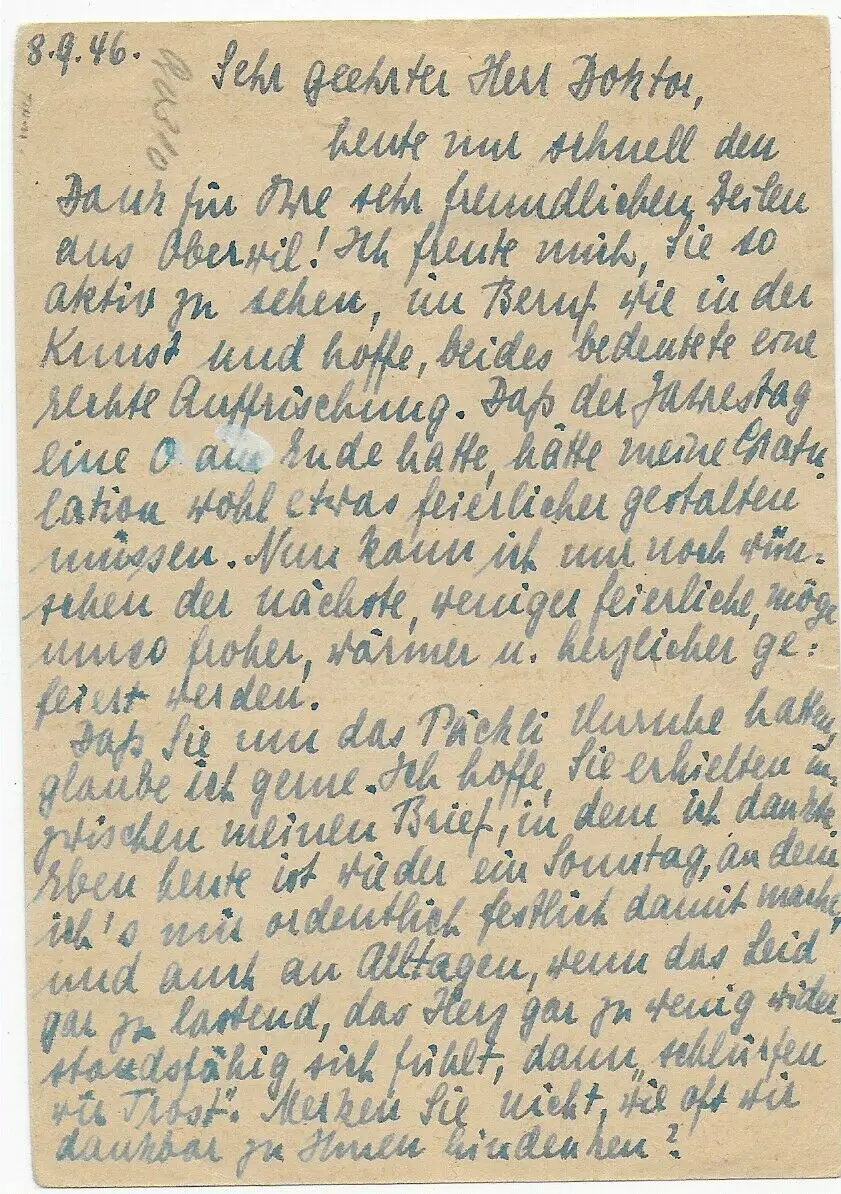 8.9.46.
Sehr geehrter Herr Doktor,
heute nur schnell den
Dank für Ihre sehr freundlichen Zeilen
aus Oberwil! Ich freute mich, Sie so
aktiv zu sehen, im Beruf wie in der
Kunst und hoffe, beides bedeutete eine
rechte Auffrischung. Daß der Jahrestag
eine 0 am Ende hatte, hätte meine Gratu-
lation wohl etwas feierlicher gestalten
müssen. Nun kann ich nur noch wün-
schen der nächste, weniger feierliche, möge
umso froher, wärmer u. herzlicher ge-
feiert werden.
Daß Sie um das Päckli Unruhe hatten,
glaube ich gerne. Ich hoffe, Sie erhielten in-
zwischen meinen Brief, in dem ich dankte.
Eben heute ist wieder ein Sonntag, an dem
ich's mir ordentlich festlich damit mache,
und auch an Alltagen, wenn das Leid
gar zu lastend, das Herz gar zu wenig wider-
standsfähig sich fühlt, dann „schlürfen
wir Trost". Merken Sie nicht, wie oft wir
dankbar zu Ihnen hindenken?